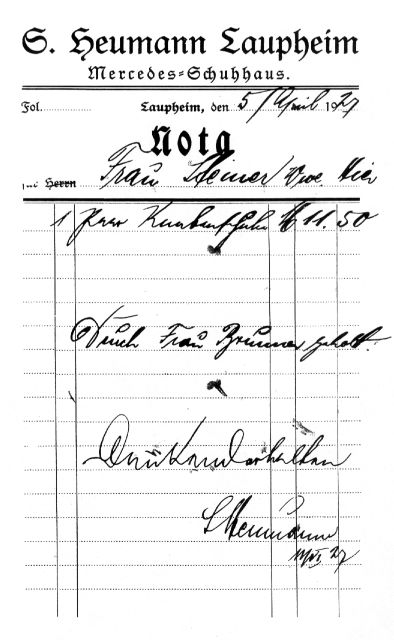 S. Heumann Laupheim
Mercedes=Schuhhaus.
Fol. Laupheim, den 5/ April 1927
Nota
für Herrn Frau Steiner Wwe. hier
1 paar Knabenschuhe M 11.50
Durch Frau Brunner geholt.
Dankend erhalten
S Heumann
27